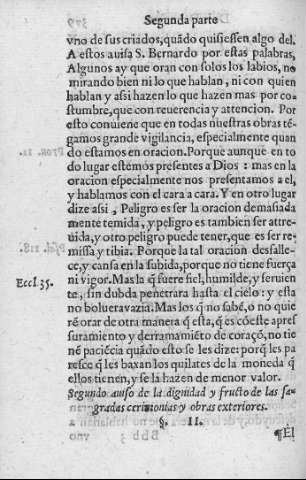 Segunda parte
vno de sus criados, quãdo quisiessen algo del.
A estos auisa S. Bernardo por estas palabras,
Algunos ay que oran con solos los labios, no
mirando bien ni lo que hablan, ni con quien
hablan y assi hazen lo que hazen mas por co-
stumbre, que con reuerencia y attencion. Por
esto conuiene que en todas nuestras obras té-
gamos grande vigilancia, especialmente quan
do estamos en oracion. Porque aunque en to
do lugar estémos presentes a Dios : mas en la
oracion especialmente nos presentamos a el,
y hablamos con el cara a cara. Y en otro lugar
dize assi , Peligro es ser la oracion demasiada
mente temida , y peligro es tambien ser atre-
uida, y otro peligro puede tener, que es ser re-
missa y tibia. Porque la tal oracion desfalle-
ce, y cansa en la subida, porque no tiene fuerça
ni vigor. Mas la q̃ fuere fiel, humilde, y feruien
te, sin dubda penetrara hasta el cielo : y esta
Eccl. 35.
no boluera vazia. Mas los q̃ no sabé, o no quie
ré orar de otra manera q̃ esta, q̃ es có este apres
suramiento y derramamiéto de coraçó, no tie
né paciécia quãdo esto se les dize: porq̃ les pa
resce q̃ les baxan los quilates de la moneda q̃
ellos tienen, y se la hazen de menor valor.
Segundo auiso de la dignidad y fructo de las sa-
gradas cerimonias y obras exteriores.
§. II.
¶El